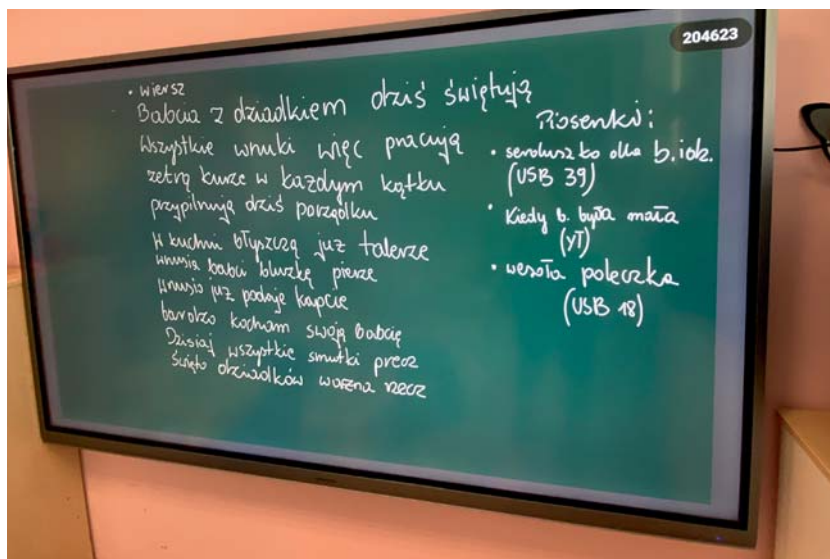 204623
• wiersz
Babcia z dziadkiem dziś świętują
Wszystkie wnuki więc pracują
zetrą kurze w każdym kątku
przypilnują dziś porządku
W kuchni błyszczą już talerze
wnusia babci bluzkę pierze
Wnusio już podaje kapcie
bardzo kocham swoją babcię
Dzisiaj wszystkie smutki precz
Święto dziadków ważna rzecz
Piosenki:
• serduszko dla b. i dz.
(USB 39)
• Kiedy b. była mała
(YT)
• wesoła poleczka
(USB 18)